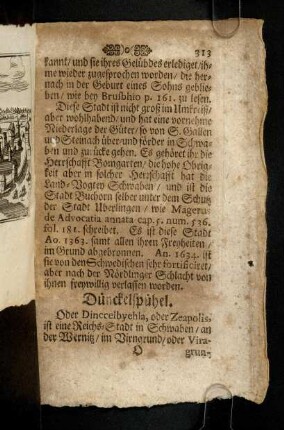 313
kannt/ und sie ihres Gelübdes erlediget/ih-
me wieder zugesprochen worden/ die her-
nach in der Geburt eines Sohns geblie-
ben/ wie bey Bruschio p. 161. zu lesen.
Diese Stadt ist nicht groß im Umkreise/
aber wohlhabend/ und hat eine vornehme
Niederlage der Güter/ so von S. Gallen
und Steinach über/ und förder in Schwa-
ben und zurücke gehen. Es gehöret ihr die
Herrschafft Bomgarten/ die hohe Obrig-
keit aber in solcher Herrschafft hat die
Land-Vogtey Schwaben/ und ist die
Stadt Buchorn selber unter dem Schutz
der Stadt Uberlingen/ wie Magerus
de Advocatia annata cap. 5. num. 536.
fol. 181. schreibet. Es ist diese Stadt
Ao. 1363. samt allen ihren Freyheiten/
im Grund abgebronnen. An. 1634. ist
sie von den Schwedischen sehr fortificiret/
aber nach der Nördlinger Schlacht von
ihnen freywillig verlassen worden.
Dünckelspühel.
Oder Dinccelbyehla, oder Zeapolis,
ist eine Reichs-Stadt in Schwaben/ an
der Wernitz/ im Virngrund/ oder Vira-
O grun-